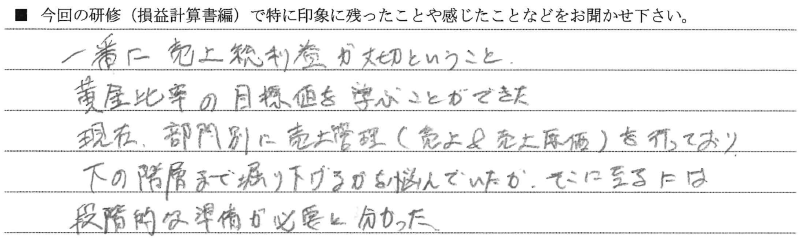 ■ 今回の研修（損益計算書編）で特に印象に残ったことや感じたことなどをお聞かせ下さい。
一番に売上総利益が大切ということ。
黄金比率の目標値を学ぶことができた
現在、部門別に売上管理（売上＆売上原価）を行っており
下の階層まで掘り下げるかを悩んでいたが、そこに至るには
段階的な準備が必要と分かった